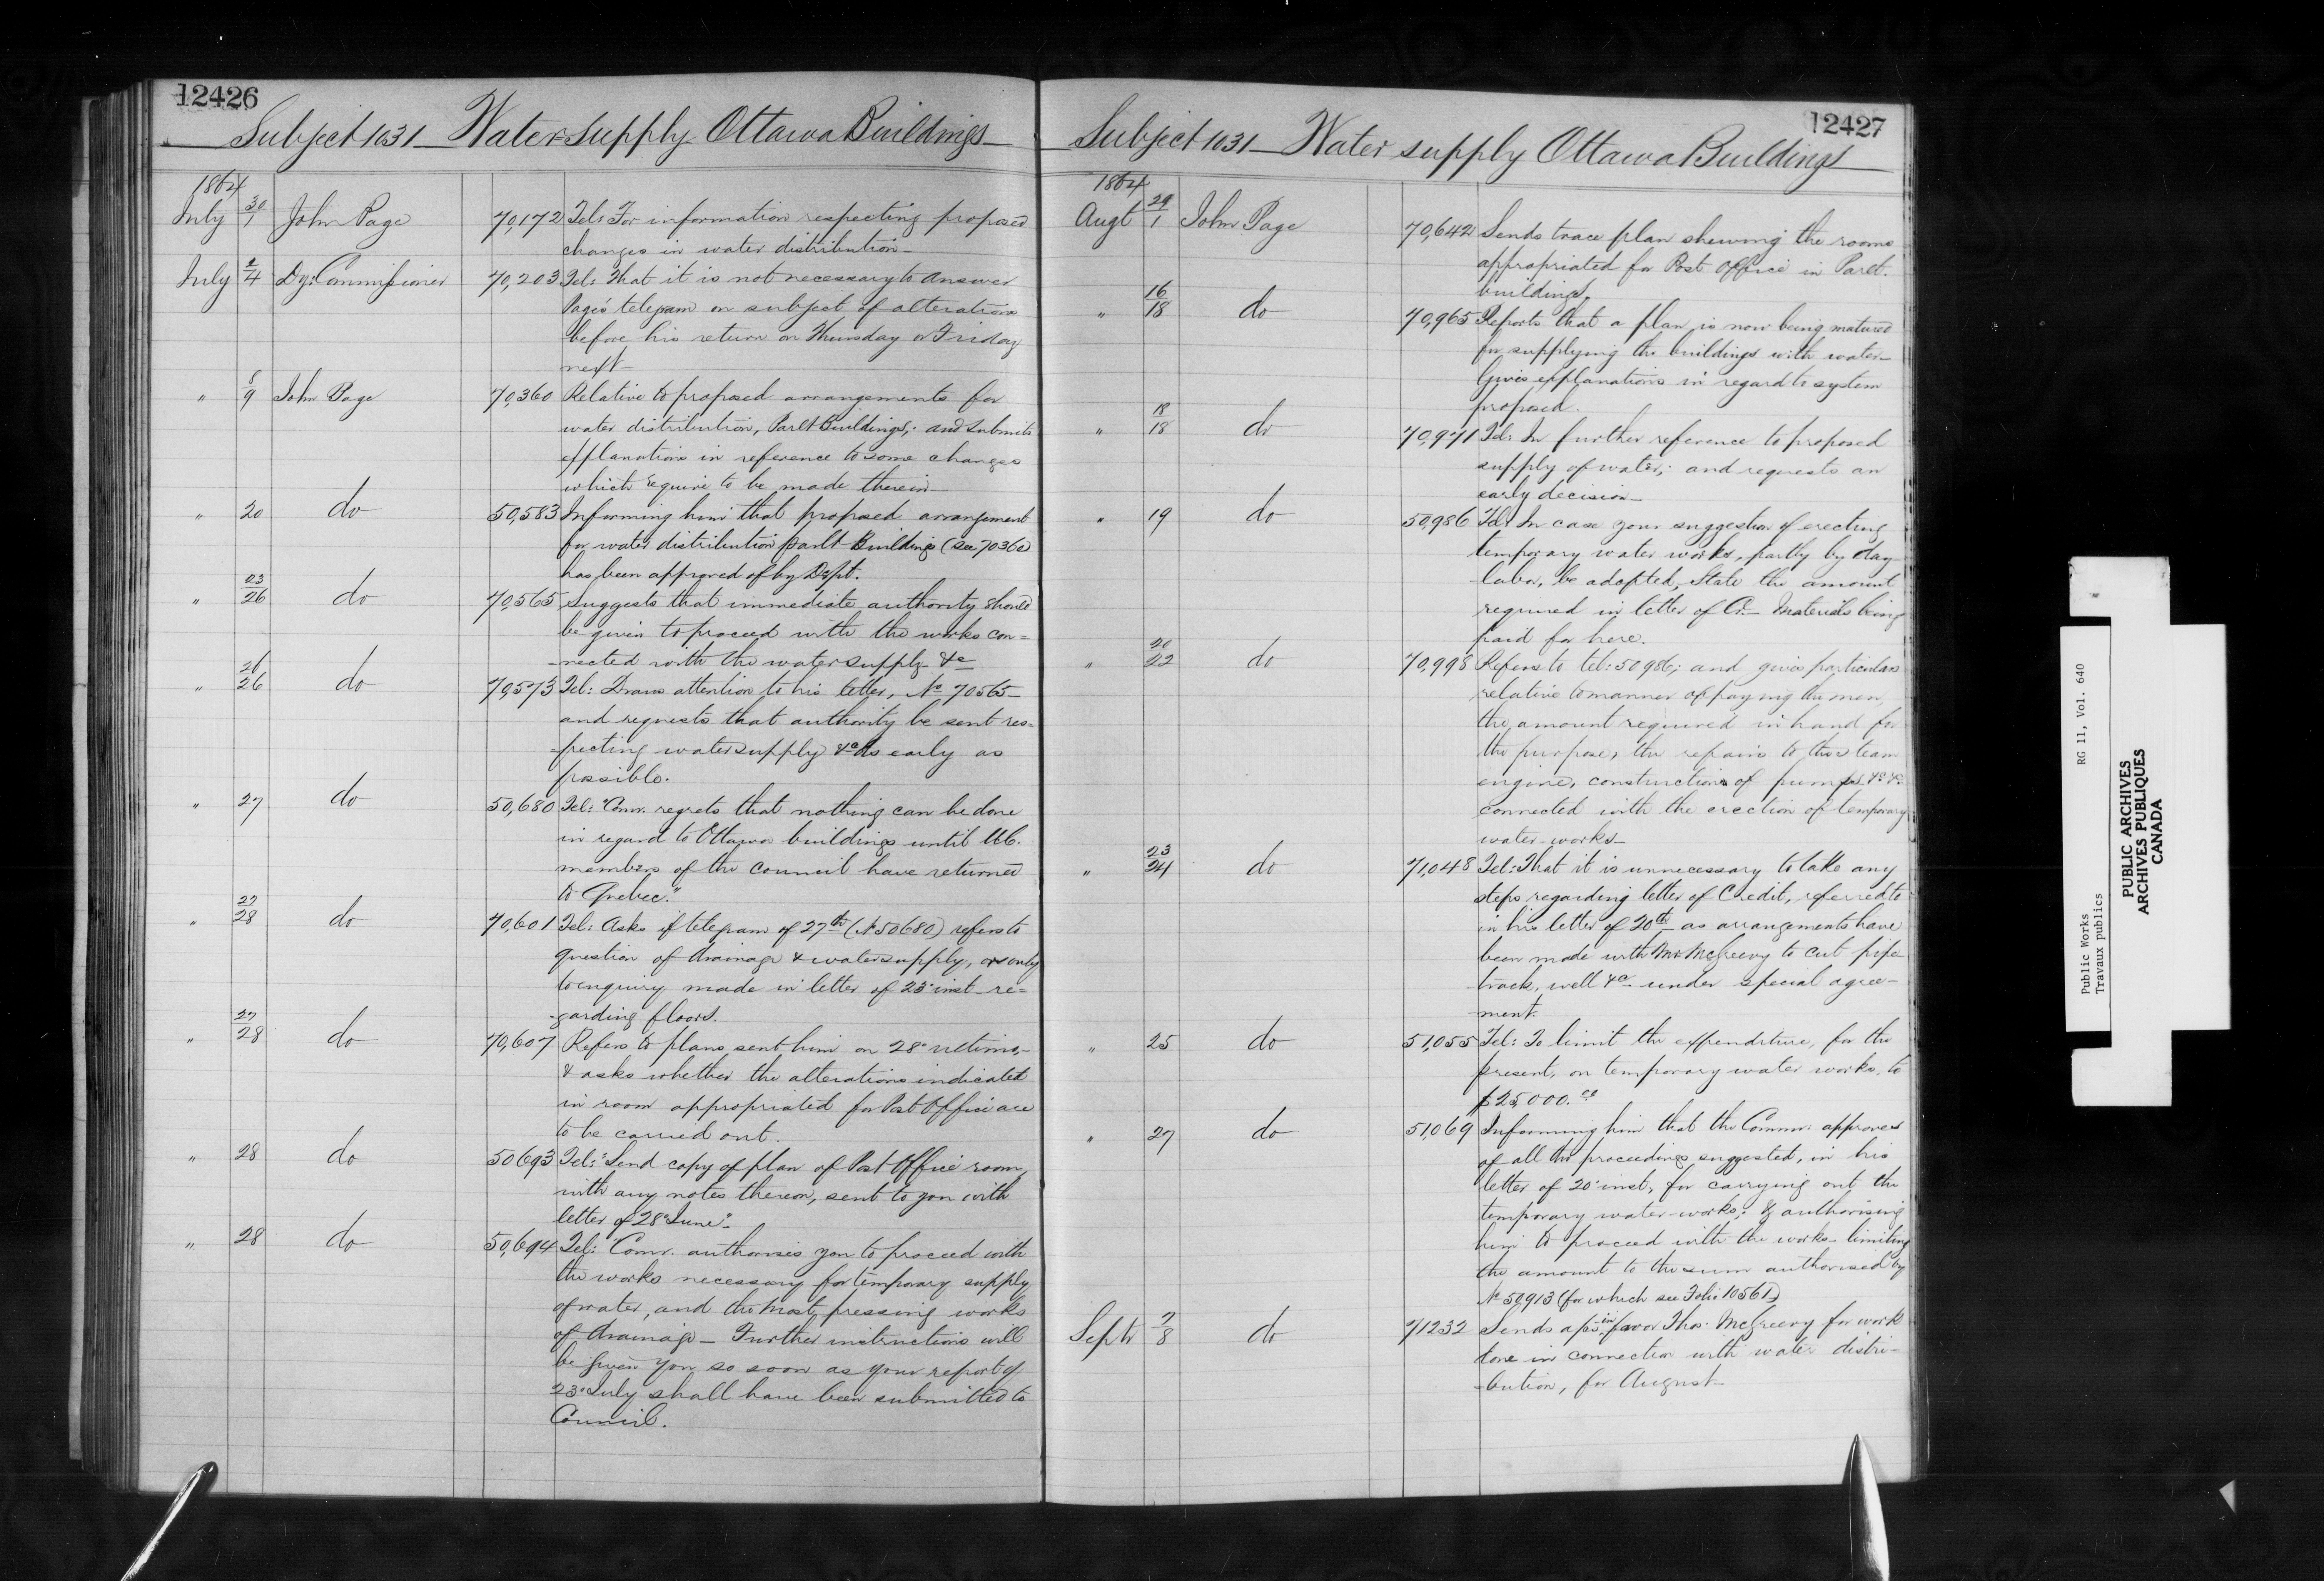 12426
Subject 1031 Water Supply Ottawa Buildings
1864
July 30/1 John Page 70,172 Tel: For information respecting proposed
changes in water distribution
July 2/4 Dy: Commissioner 70,203 Tel: That it is not necessary to answer
Page's telegram on subject of alterations
before his return on Thursday or Friday
next
" 8/9 John Page 70,360 Relative to proposed arrangements for
water distribution, Parlt Buildings; and submits
explanations in reference to some changes
which require to be made therein
" 20 do 50,583 Informing him that proposed arrangement
for water distribution parlt Buildings (see 70360)
has been approved of by Dept.
" 23/26 do 70,565 Suggests that immediate authority should
be given to proceed with the works con=
nected with the water supply &c
" 26/26 do 70,573 Tel: Draws attention to his letter, No 70565
and requests that authority be sent res=
pecting water supply &c as early as
possible.
" 27 do 50,680 Tel: "Comr. regrets that nothing can be done
in regard to Ottawa buildings until U.C.
members of the Council have returned
to Quebec."
" 27/28 do 70,601 Tel: Asks if telegram of 27th (No 50680) refers to
question of drainage & water supply, or only
to enquiry made in letter of 23d inst re=
garding floors.
" 27/28 do 70,607 Refers to plans sent him on 28th ultimo,
& asks whether the alterations indicated
in room appropriated for Post Office are
to be carried out.
" 28 do 50693 Tel: "Send copy of plan of Post Office room,
with any notes thereon, sent to you with
letter of 28th June"
" 28 do 50,694 Tel: "Comr. authorises you to proceed with
the works necessary for temporary supply
of water, and the most pressing works
of drainage — Further instructions will
be given you so soon as your report of
23d July shall have been submitted to
Council.
12427
Subject 1031 Water supply Ottawa Buildings
1864
Augt 29/1 John Page 70,642 Sends trace plan shewing the rooms
appropriated for Post Office in Parlt.
buildings.
" 16/18 do 70,965 Reports that a plan is now being matured
for supplying the buildings with water
Gives explanations in regard to system
proposed.
" 18/18 do 70,971 Tel: In further reference to proposed
supply of water; and requests an
early decision
" 19 do 50,986 Tel: In case your suggestion of erecting
temporary water works, partly by day
labor, be adopted, State the amount
required in letter of Cr. — Materials being
paid for here.
" 20/22 do 70,998 Refers to tel: 50986; and gives particulars
relative to manner of paying the men,
the amount required in hand for
the purpose, the repairs to the steam
engine, construction of pumps &c &c
connected with the erection of temporary
water-works
" 23/24 do 71,048 Tel: That it is unnecessary to take any
steps regarding letter of Credit, referred to
in his letter of 20th as arrangements have
been made with Mr McGreevy to cut pipe
track, well &c. under special agree-
ment.
" 25 do 51,055 Tel: To limit the expenditure, for the
present, on temporary water works, to
$25,000.
" 27 do 51,069 Informing him that the Commr. approves
of all the proceedings suggested, in his
letter of 20th inst, for carrying out the
temporary water-works; & authorising
him to proceed with the works — limiting
the amount to the sum authorised by
No 50913 (for which see Folio 10561)
Septr 7/8 do 71232 Sends in favor Thos. McGreevy for work
done in connection with water distri-
bution, for August
RG 11, Vol. 640
Public Works
Travaux publics
PUBLIC ARCHIVES
ARCHIVES PUBLIQUES
CANADA